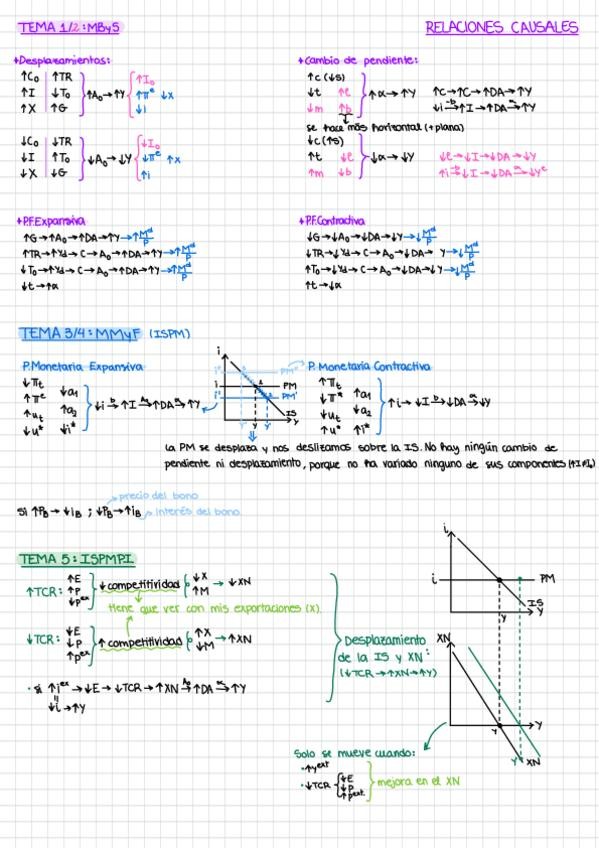 TEMA 1/2: MByS
RELACIONES CAUSALES
+Desplazamientos:
↑C₀ ↑TR
↑I ↓T₀ ↑A₀→↑Y
↑X ↑G
↑I₀
↑πᵉ ↓X
↓i
↓C₀ ↓TR
↓I ↑T₀ ↓A₀→↓Y
↓X ↓G
↓I₀
↓πᵉ ↑X
↑i
+Cambio de pendiente:
↑c (↓s)
↓t ↑e ↑α→↑Y
↓m ↑b
↑c→↑C→↑DA→↑Y
↓i -b→ ↑I→↑DA α→ ↑Y
se hace más horizontal (+plana)
↓c (↑s)
↑t ↓e ↓α→↓Y
↑m ↓b
↓e→↓I→↓DA→↓Y
↑i -b→ ↓I→↓DA α→ ↓Yᵉ
+P.F.Expansiva
↑G→↑A₀→↑DA→↑Y→↑Mᵈ/P
↑TR→↑Yd→C→A₀→↑DA→↑Y→↑Mᵈ/P
↓T₀→↑Yd→C→A₀→↑DA→↑Y→↑Mᵈ/P
↓t→↑α
+P.F.Contractiva
↓G→↓A₀→↓DA→↓Y→↓Mᵈ/P
↓TR→↓Yd→C→A₀→↓DA→ Y→↓Mᵈ/P
↑T₀→↓Yd→C→A₀→↓DA→↓Y→↓Mᵈ/P
↑t→↓α
TEMA 3/4: MMyF (ISPM)
P.Monetaria Expansiva
↓πt ↓a₁
↑πᵉ ↑a₂
↑ut ↓i*
↓u*
↓i -b→ ↑I A₀→ ↑DA α→ ↑Y
i
PM
PM'
IS
Y
P. Monetaria Contractiva
↑πt ↑a₁
↓π* ↓a₂
↓ut ↑i*
↑u*
↑i→↓I -b→ ↓DA α→ ↓Y
La PM se desplaza y nos deslizamos sobre la IS. No hay ningún cambio de
pendiente ni desplazamiento, porque no ha variado ninguno de sus componentes (↑I≠I₀)
precio del bono
Si ↑PB→↓iB ; ↓PB→↑iB interés del bono.
TEMA 5: ISPMPI
↑TCR: ↑E
↑P
↓Pᵉˣ
↓ competitividad ↓X
↑M → ↓XN
tiene que ver con mis exportaciones (X).
↓TCR: ↓E
↓P
↑Pᵉˣ
↑ competitividad ↑X
↓M → ↑XN
· Si ↑iᵉˣ→↓E→↓TCR→↑XN A₀→ ↑DA α→ ↑Y
↓i→↑Y
Desplazamiento
de la IS y XN:
(↓TCR→↑XN→↑Y)
i
i PM
IS
Y Y
XN
Y Y
Y' XN
Solo se mueve cuando:
·↑Yᵉˣᵗ
·↓TCR ↓E
↓P
↑Pᵉˣᵗ.
mejora en el XN